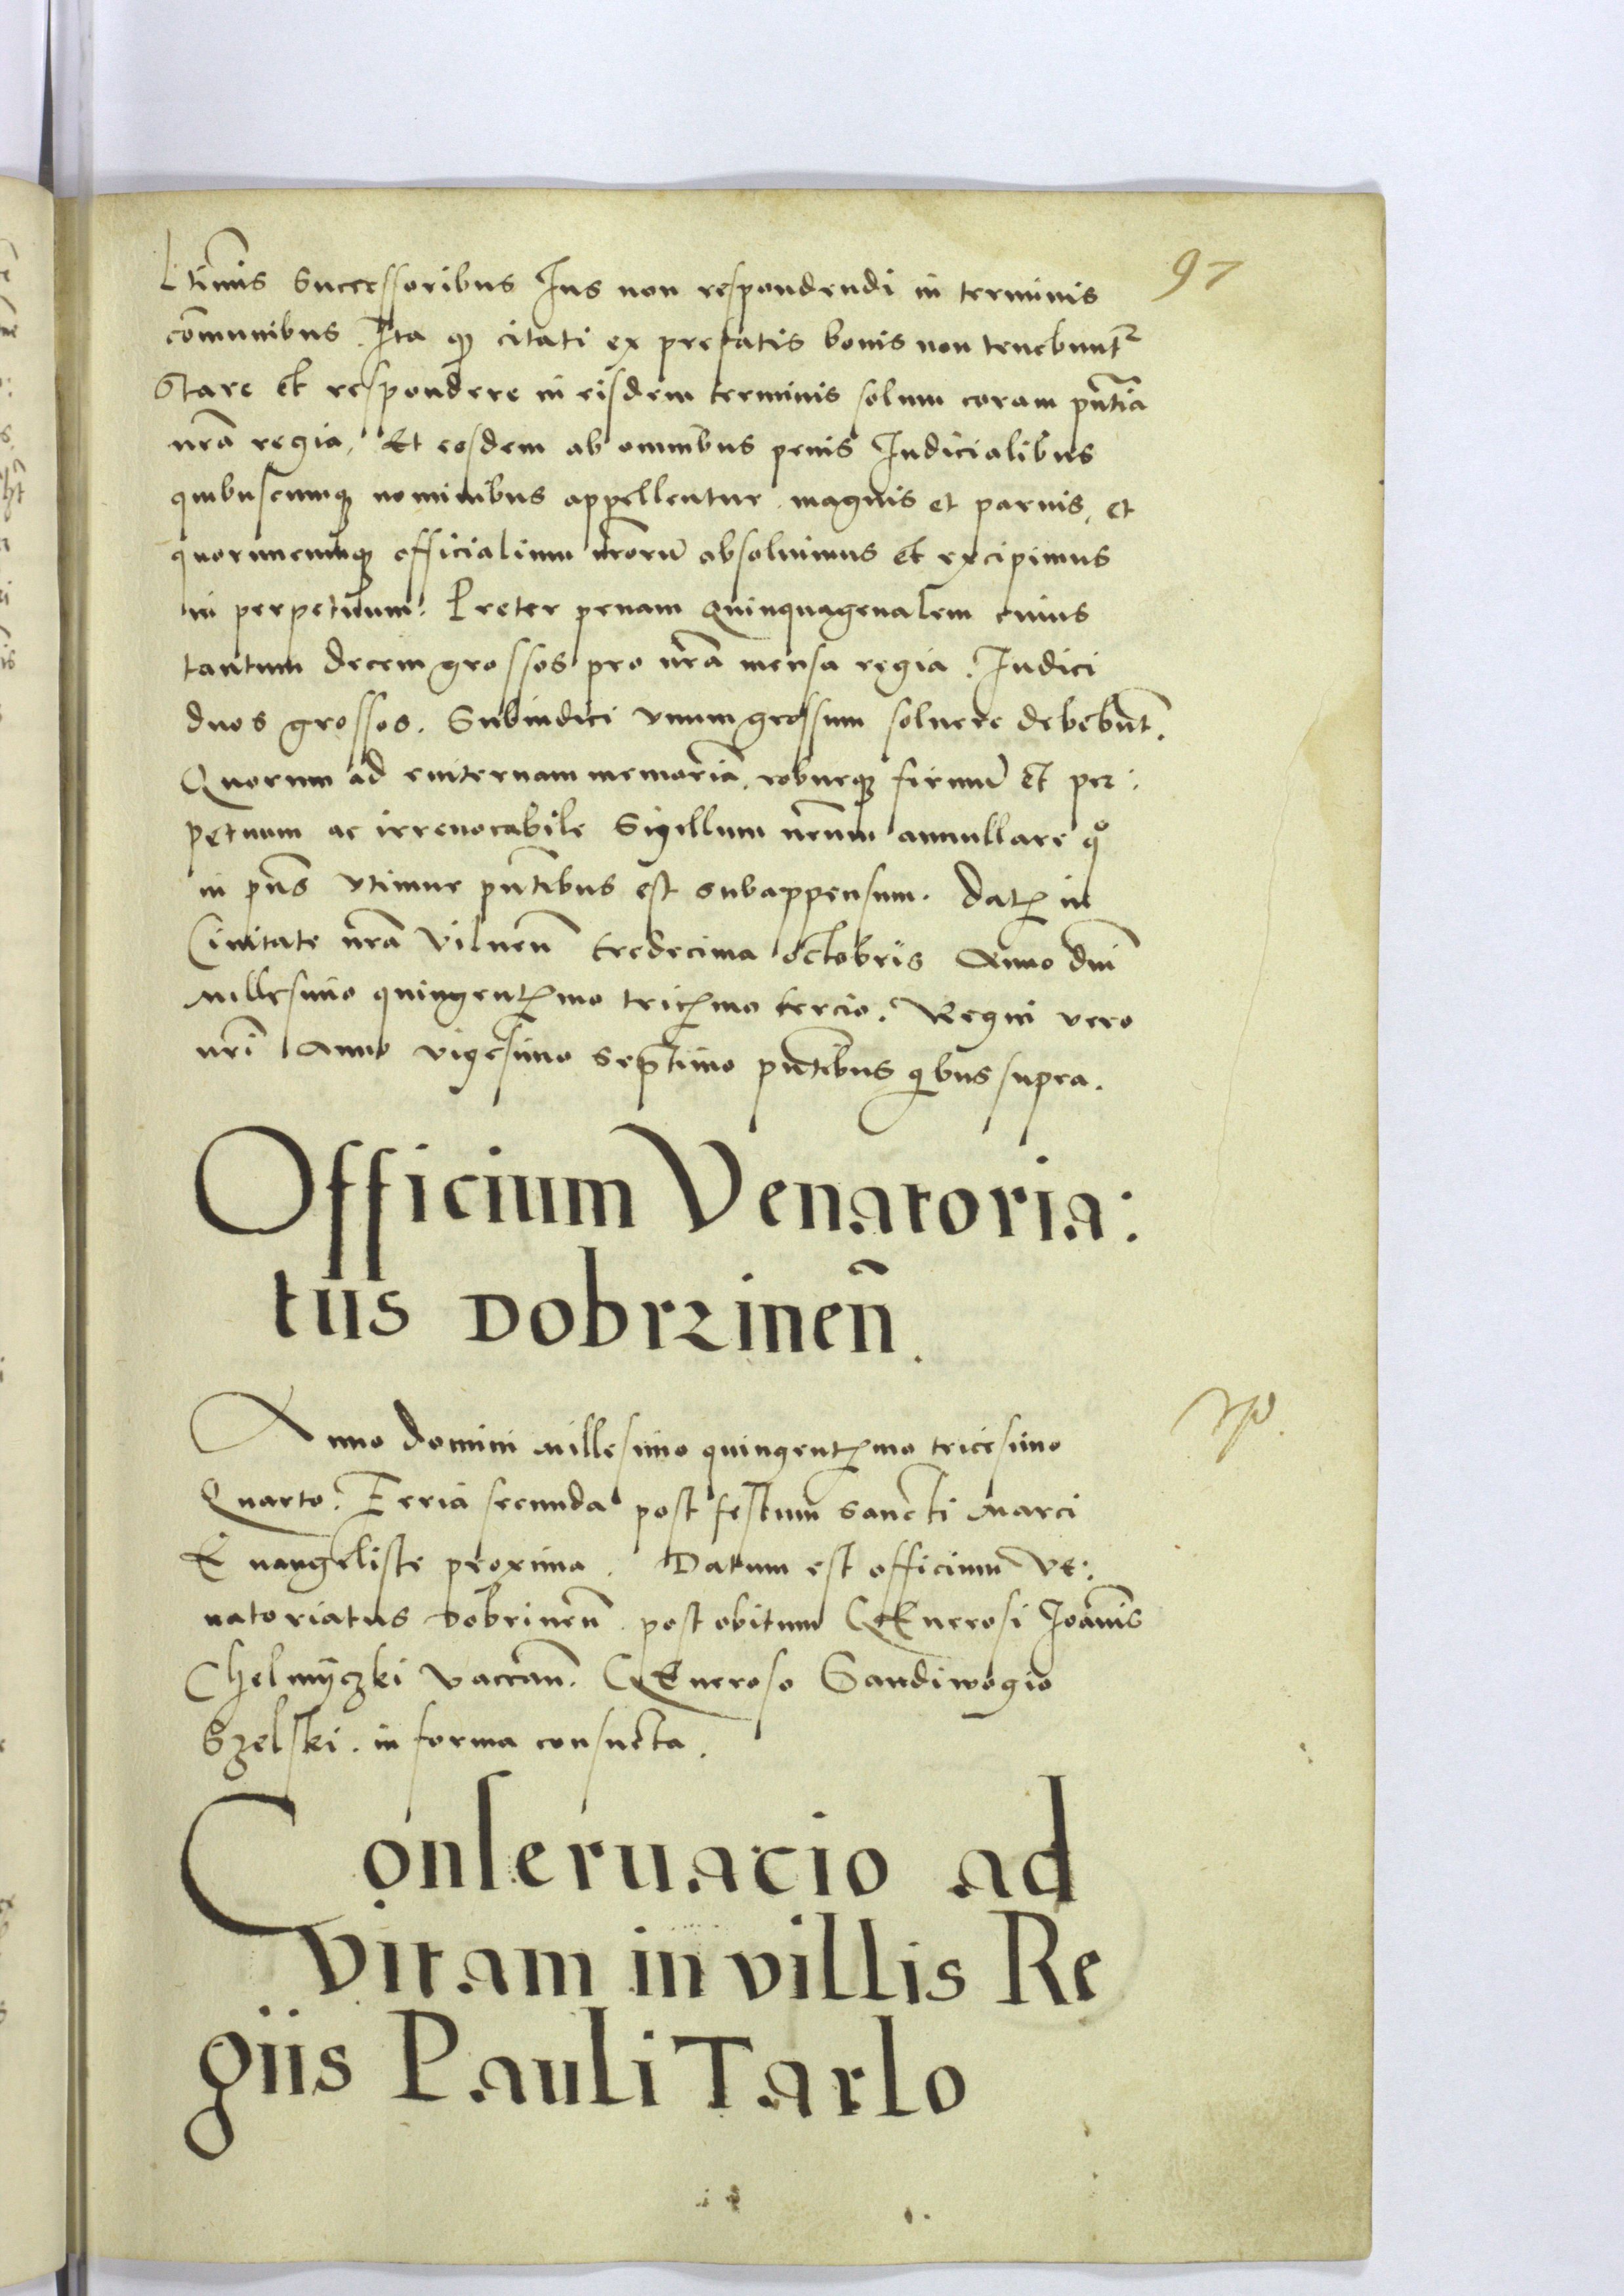 97
Ltimis Successoribus Ius non respondendi in terminis
cōmunibus. Ita qƺ citati ex prefatis bonis non tenebuntʳ
Stare et respondere in eisdem terminis solum coram pn̄tia
nr̄a regia. Et eosdem ab omnibus penis Iudicialibus
quibuscumqƺ nominibus appellentur magnis et paruis, et
quorumcumqƺ officialium nr̄orū absoluimus et excipimus
in perpetuum. Preter penam quinquagenalem cuius
tantum decem grossos pro nr̄a mensa regia. Iudici
duos grossos. Subiudici vnum grossum soluere debebūt.
Quorum ad euiternam memoriā, roburqƺ firmū et per:
petuum ac irreuocabile Sigillum nr̄um annullare qº
in pn̄s vtimur pn̄tibus est subappensum. Datꝭ in
Ciuitate nr̄a Vilnen̄ tredecima octobris Anno dn̄i
Millesimo quingentꝭmo tricꝭmo tercio. Regni vero
nr̄i Anno vigesimo septimo pn̄tibus qbus supra.
Officium Venatoria:
tus Dobrzinen̄.
Anno domini Millesimo quingentꝭmo tricesimo
Quarto. Feria secunda post festum Sancti Marci
Euangeliste proxima. Datum est officium Ve:
natoriatus Dobrinen̄ post obitum GEnerosi Ioannis
Chelmyczki vaccan̄. GEneroso Sandiwogio
Szelski. in forma consueta.
Conseruacio ad
vitam in villis Re
giis Pauli Tarlo